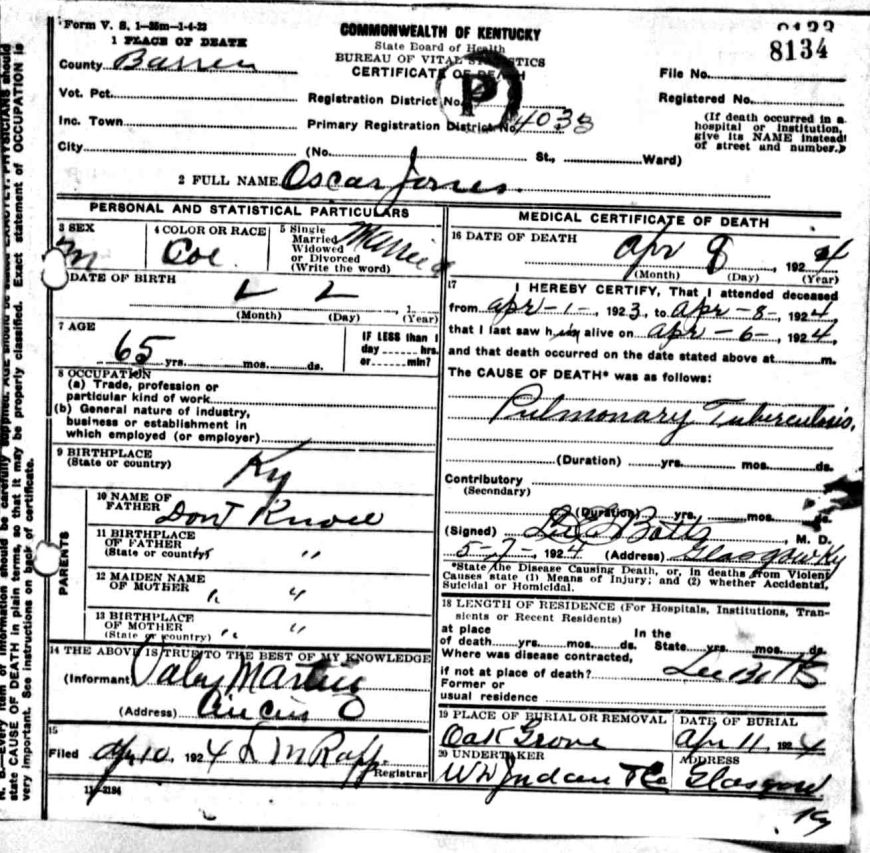 Form V. S. 1—25m—1-4-23
1 PLACE OF DEATH
County Barren
Vot. Pct.
Inc. Town
City
COMMONWEALTH OF KENTUCKY
State Board of Health
BUREAU OF VITAL STATISTICS
CERTIFICATE OF DEATH
P
Registration District No.
Primary Registration District No. 4033
(No. St., Ward)
8134
File No.
Registered No.
(If death occurred in a
hospital or institution,
give its NAME instead
of street and number.)
2 FULL NAME Oscar Jones
PERSONAL AND STATISTICAL PARTICULARS
3 SEX
m
4 COLOR OR RACE
Col
5 Single
Married
Widowed
or Divorced
(Write the word)
Married
6 DATE OF BIRTH
(Month) (Day) (Year)
7 AGE
65 yrs. mos. ds.
IF LESS than 1
day hrs.
or min?
8 OCCUPATION
(a) Trade, profession or
particular kind of work
(b) General nature of industry,
business or establishment in
which employed (or employer)
9 BIRTHPLACE
(State or country)
Ky
PARENTS
10 NAME OF
FATHER Dont Know
11 BIRTHPLACE
OF FATHER
(State or country) " "
12 MAIDEN NAME
OF MOTHER " "
13 BIRTHPLACE
OF MOTHER
(State or country) " "
14 THE ABOVE IS TRUE TO THE BEST OF MY KNOWLEDGE
(Informant Martin
(Address) Cincin O
15
Filed Apr 10, 1924 L M Rapp
Registrar
11—3184
MEDICAL CERTIFICATE OF DEATH
16 DATE OF DEATH
Apr 8, 1924
(Month) (Day) (Year)
17 I HEREBY CERTIFY, That I attended deceased
from Apr-1-, 1923, to Apr-8-, 1924,
that I last saw him alive on Apr-6-, 1924,
and that death occurred on the date stated above at m.
The CAUSE OF DEATH* was as follows:
Pulmonary Tuberculosis.
(Duration) yrs. mos. ds.
Contributory
(Secondary)
(Duration) yrs. mos. ds.
(Signed) Botts, M. D.
5-7-, 1924 (Address) Glasgow Ky
*State the Disease Causing Death, or, in deaths from Violent
Causes state (1) Means of Injury; and (2) whether Accidental,
Suicidal or Homicidal.
18 LENGTH OF RESIDENCE (For Hospitals, Institutions, Tran-
sients or Recent Residents)
at place In the
of death yrs. mos. ds. State yrs. mos. ds.
Where was disease contracted,
if not at place of death? Lee Botts
Former or
usual residence
19 PLACE OF BURIAL OR REMOVAL
Oak Grove
DATE OF BURIAL
Apr 11, 1924
20 UNDERTAKER
ADDRESS
Glasgow
19
N. B.—Every item of information should be carefully supplied. AGE should be stated EXACTLY. PHYSICIANS should
state CAUSE OF DEATH in plain terms, so that it may be properly classified. Exact statement of OCCUPATION is
very important. See instructions on back of certificate.